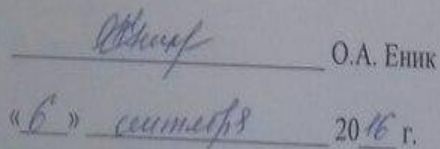 О.А. Еник
«6» сентября 2016 г.